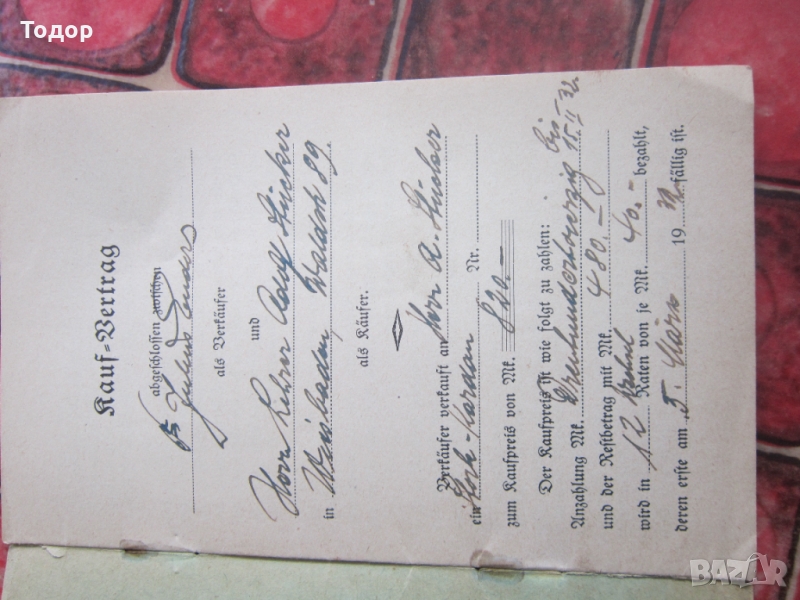 Тодор
Kauf-Vertrag
abgeschlossen zwischen
Julius Enders
als Verkäufer
und
Herrn Lehrer Adolf Stücker
in Wiesbaden, Waldstr 89.
als Käufer.
Verkäufer verkauft an Herrn A. Stücker
ein Nr.
zum Kaufpreis von Mk. 820.-
Der Kaufpreis ist wie folgt zu zahlen:
Anzahlung Mk. Dreihundertvierzig bis 15. II 32.
und der Restbetrag mit Mk. 480.-
wird in 12 Raten von je Mk. 40.- bezahlt,
deren erste am 5. März 19 fällig ist.
BAZAR